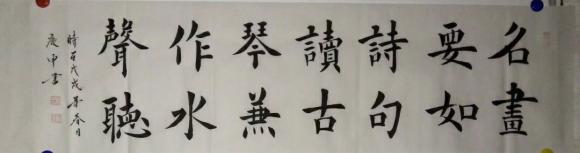 名畫
要如
詩句
讀古
琴兼
作水
聲聽
時在戊戌年春月
庚申書